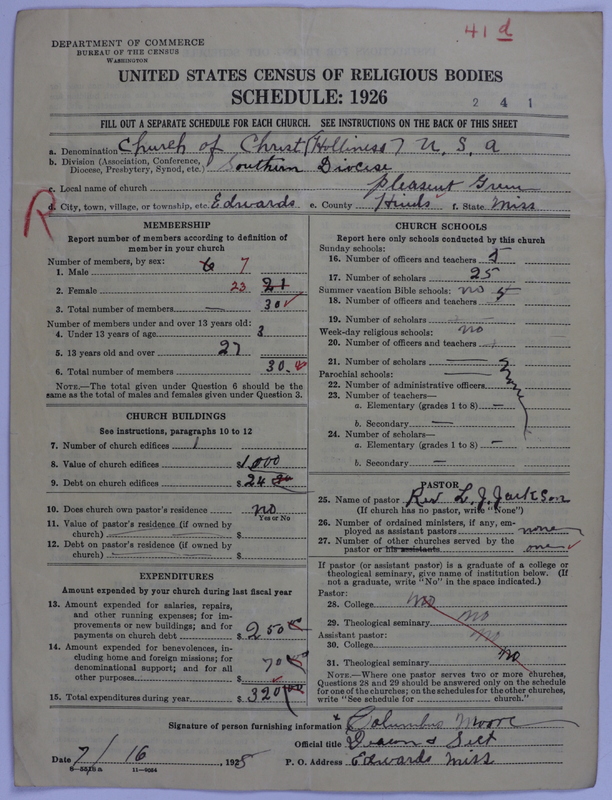 41 d
DEPARTMENT OF COMMERCE
BUREAU OF THE CENSUS
WASHINGTON
UNITED STATES CENSUS OF RELIGIOUS BODIES
SCHEDULE: 1926
2 4 1
FILL OUT A SEPARATE SCHEDULE FOR EACH CHURCH. SEE INSTRUCTIONS ON THE BACK OF THIS SHEET
a. Denomination Church of Christ (Holliness) U, S, a
b. Division (Association, Conference, Diocese, Presbytery, Synod, etc.) Southern Diocise
c. Local name of church Pleasent Green
R
d. City, town, village, or township, etc. Edwards e. County Hinds f. State Miss
MEMBERSHIP
Report number of members according to definition of
member in your church
Number of members, by sex:
1. Male 6 7
2. Female 23 21
3. Total number of members — 30 ✓
Number of members under and over 13 years old:
4. Under 13 years of age 3
5. 13 years old and over 27
6. Total number of members 30
NOTE.—The total given under Question 6 should be the
same as the total of males and females given under Question 3.
CHURCH BUILDINGS
See instructions, paragraphs 10 to 12
7. Number of church edifices 1
8. Value of church edifices $1000
9. Debt on church edifices $24
10. Does church own pastor's residence no
Yes or No
11. Value of pastor's residence (if owned by
church) $
12. Debt on pastor's residence (if owned by
church) $
EXPENDITURES
Amount expended by your church during last fiscal year
13. Amount expended for salaries, repairs,
and other running expenses; for im-
provements or new buildings; and for
payments on church debt $250 00
14. Amount expended for benevolences, in-
cluding home and foreign missions; for
denominational support; and for all
other purposes $70 00
15. Total expenditures during year $320 00
CHURCH SCHOOLS
Report here only schools conducted by this church
Sunday schools:
16. Number of officers and teachers 5
17. Number of scholars 25
Summer vacation Bible schools: no
18. Number of officers and teachers
19. Number of scholars
Week-day religious schools: no
20. Number of officers and teachers
21. Number of scholars
Parochial schools:
22. Number of administrative officers
23. Number of teachers—
a. Elementary (grades 1 to 8) —
b. Secondary —
24. Number of scholars—
a. Elementary (grades 1 to 8) —
b. Secondary —
PASTOR
25. Name of pastor Rev L. J. Jackson
(If church has no pastor, write "None")
26. Number of ordained ministers, if any, em-
ployed as assistant pastors none
27. Number of other churches served by the
pastor or his assistants one ✓
If pastor (or assistant pastor) is a graduate of a college or
theological seminary, give name of institution below. (If
not a graduate, write "No" in the space indicated.)
Pastor:
28. College no
29. Theological seminary no
Assistant pastor:
30. College no
31. Theological seminary no
NOTE.—Where one pastor serves two or more churches,
Questions 28 and 29 should be answered only on the schedule
for one of the churches; on the schedules for the other churches,
write "See schedule for ... church."
Signature of person furnishing information Columbus Moore
Official title Deacon & Sect
Date 7/16, 192 P. O. Address Edwards Miss
11—9084